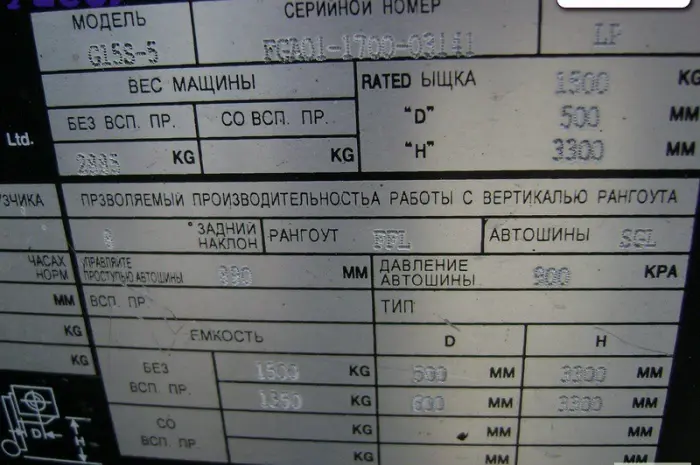 МОДЕЛЬ СЕРИЙНОЙ НОМЕР
G15S-5 FGA01-1700-03141 LP
ВЕС МАЩИНЫ RATED ЫЩКА 1500 KG
БЕЗ ВСП. ПР. СО ВСП. ПР. "D" 500 MM
Ltd. KG KG "H" 3300 MM
ПРЗВОЛЯЕМЫЙ ПРОИЗВОДИТЕЛЬНОСТЬА РАБОТЫ С ВЕРТИКАЛЬЮ РАНГОУТА
ЗАДНИЙ НАКЛОН РАНГОУТ FFL АВТОШИНЫ SGL
ЧАСАХ НОРМ УПРАВЛЯЙТЕ ПРОСТУПЬЮ АВТОШИНЫ MM ДАВЛЕНИЕ АВТОШИНЫ 900 KPA
MM ВСП. ПР. ТИП
KG ЕМКОСТЬ D H
KG БЕЗ ВСП. ПР. 1500 KG 500 MM 3300 MM
1350 KG 600 MM 3300 MM
СО ВСП. ПР. KG MM MM
KG MM MM
D H